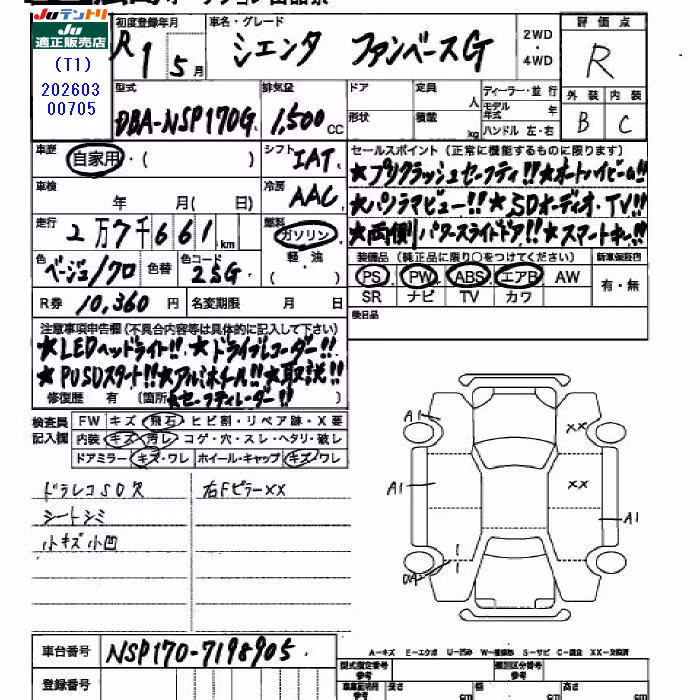 Juテントリ
Ju
適正販売店
(T1)
202603
00705
初度登録年月
R1 5月
車名・グレード
シエンタ ファンベースG
2WD
・
4WD
評価点
R
外装 内装
B C
型式
DBA-NSP170G
排気量
1,500cc
ドア
形状
定員 人
積載 kg
ディーラー・並行
モデル年式 年
ハンドル 左・右
車歴
自家用・( )
シフト
IAT
セールスポイント(正常に機能するものに限ります)
★プリクラッシュセーフティ!!★オートハイビーム!!
★パノラマビュー!!★SDオーディオ・TV!!
★両側パワースライドドア!!★スマートキー!!
車検
年 月( 日)
冷房
AAC
走行
2万7千661km
燃料
ガソリン
( 軽・油 )
色
ベージュ/クロ
色替
色コード
25G
装備品(純正品に限り○をつけてください)
新車保証書
PS PW ABS エアB AW
SR ナビ TV カワ
有・無
R券 10,360円 名変期限 月 日
後日品
注意事項申告欄(不具合内容等は具体的に記入して下さい)
★LEDヘッドライト!!★ドライブレコーダー!!
★PUSDスタート!!★アルミホイール!!★取説!!
修復歴 有 (箇所 ★セーフティレーダー!! )
検査員
記入欄
FW キズ・飛石・ヒビ割・リペア跡・X要
内装 キズ・汚レ・コゲ・穴・スレ・ヘタリ・破レ
ドアミラー キズ・ワレ ホイール・キャップ キズ・ワレ
ドラレコSD欠 右FピラーXX
シートシミ
小キズ小凹
A1
XX
A1
XX
A1
車台番号 NSP170-7198905
登録番号
A-キズ E-エクボ U-凹み W-補修跡 S-サビ C-腐食 XX-交換済
型式指定番号
参考
類別区分番号
参考
長さ cm 幅 cm 高さ cm